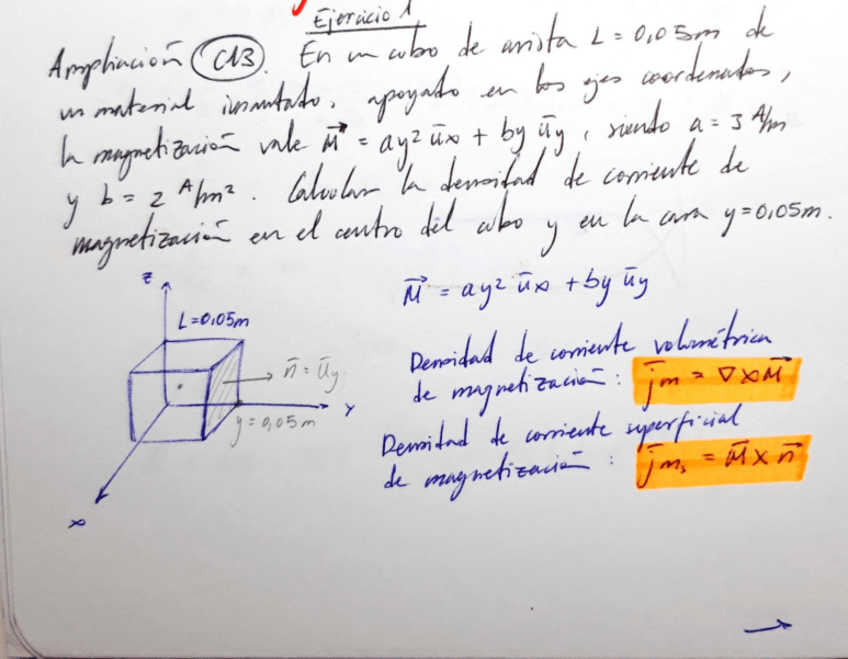 Ejercicio 1
Ampliación C13. En un cubo de arista L = 0,05m de
un material imantado, apoyado en los ejes coordenados,
la magnetización vale M⃗ = ay² ūx + by ūy, siendo a = 3 A/m³
y b = 2 A/m². Calcular la densidad de corriente de
magnetización en el centro del cubo y en la cara y=0,05m.
M⃗ = ay² ūx + by ūy
z
L=0,05m
Densidad de corriente volumétrica
de magnetización: j̄m = ∇ x M⃗
n̄ = ūy
y
y=0,05m
Densidad de corriente superficial
de magnetización: j̄ms = M̄ x n⃗
x